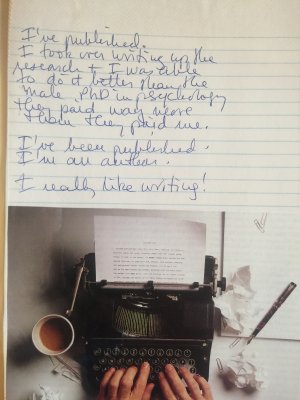 I've published.
I took over writing up the
research + I was able
to do it better than the
male PhD in psychology
they paid way more
than they paid me.
I've been published.
I'm an author.
I really like writing!